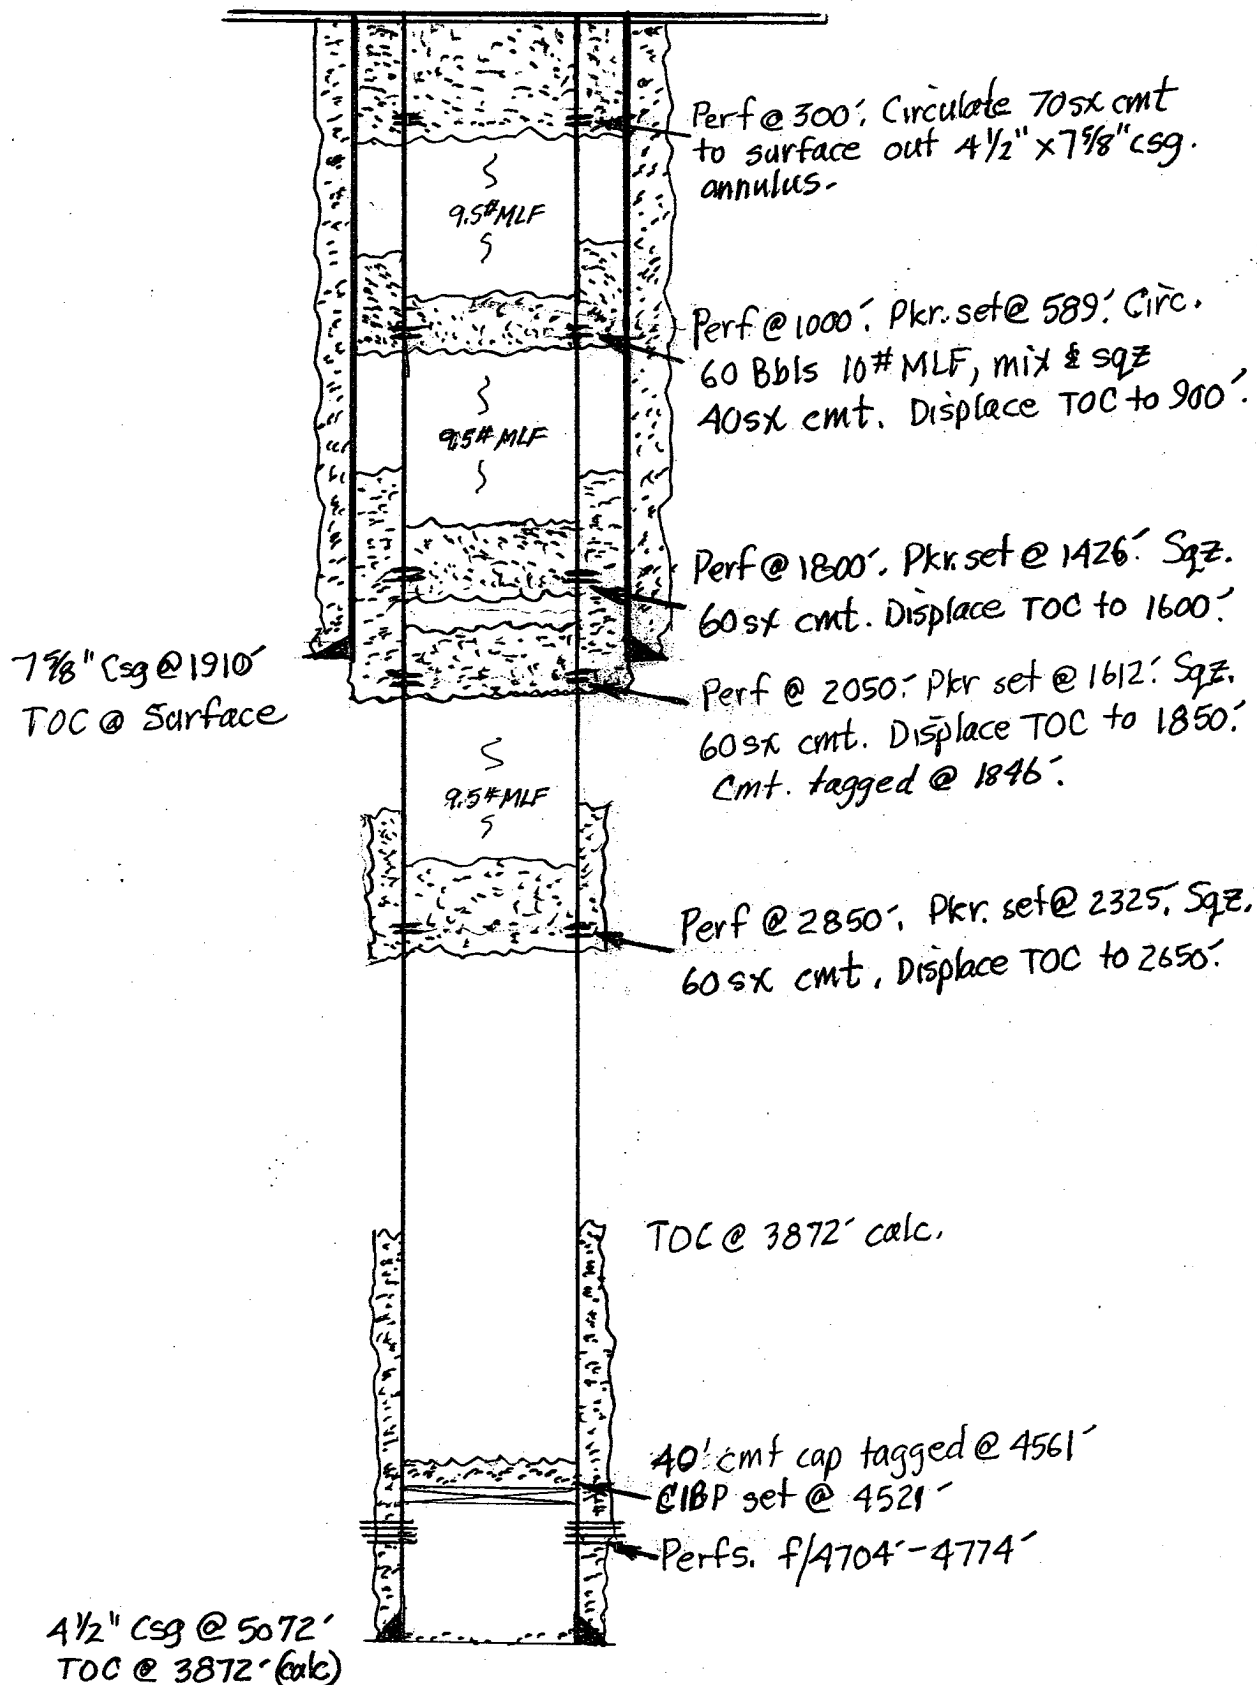 Perf @ 300'. Circulate 70sx cmt
to surface out 4 1/2" x 7 5/8" csg.
annulus.
9.5# MLF
Perf @ 1000'. Pkr. set @ 589'. Circ.
60 Bbls 10# MLF, mix & sqz
40sx cmt. Displace TOC to 900'.
9.5# MLF
Perf @ 1800'. Pkr. set @ 1426'. Sqz.
60sx cmt. Displace TOC to 1600'.
7 5/8" Csg @ 1910'
TOC @ Surface
Perf @ 2050'. Pkr set @ 1612'. Sqz.
60sx cmt. Displace TOC to 1850'.
Cmt. tagged @ 1846'.
9.5# MLF
Perf @ 2850'. Pkr. set @ 2325'. Sqz.
60 sx cmt. Displace TOC to 2650'.
TOC @ 3872' calc.
40' cmt cap tagged @ 4561'
CIBP set @ 4521'
Perfs. f/4704'-4774'
4 1/2" Csg @ 5072'
TOC @ 3872' (calc)